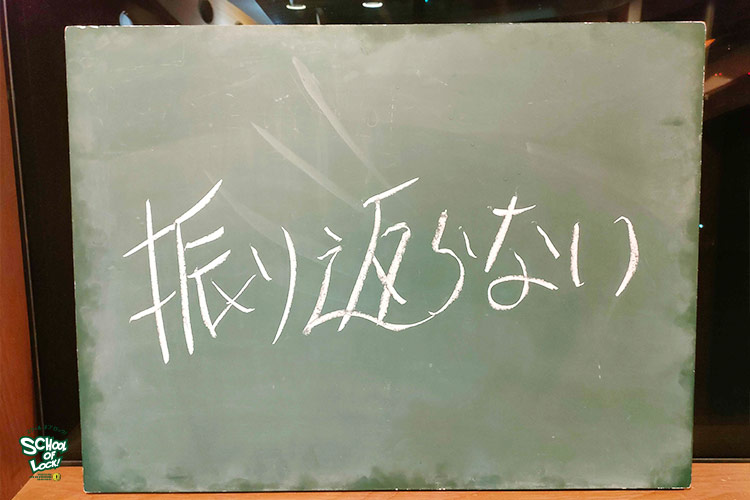 振り返らない
SCHOOL
OF
LOCK!